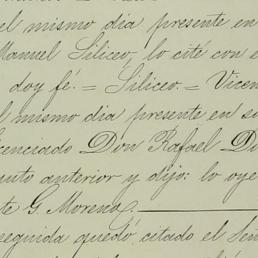 el mismo dia presente en
Manuel Siliceo, lo cité con e
doy fé. = Siliceo. = Vicen
l mismo dia presente en su
cenciado Don Rafael Do
unto anterior y dijo: lo oye
te G. Moreno.
seguida quedó citado el Señ